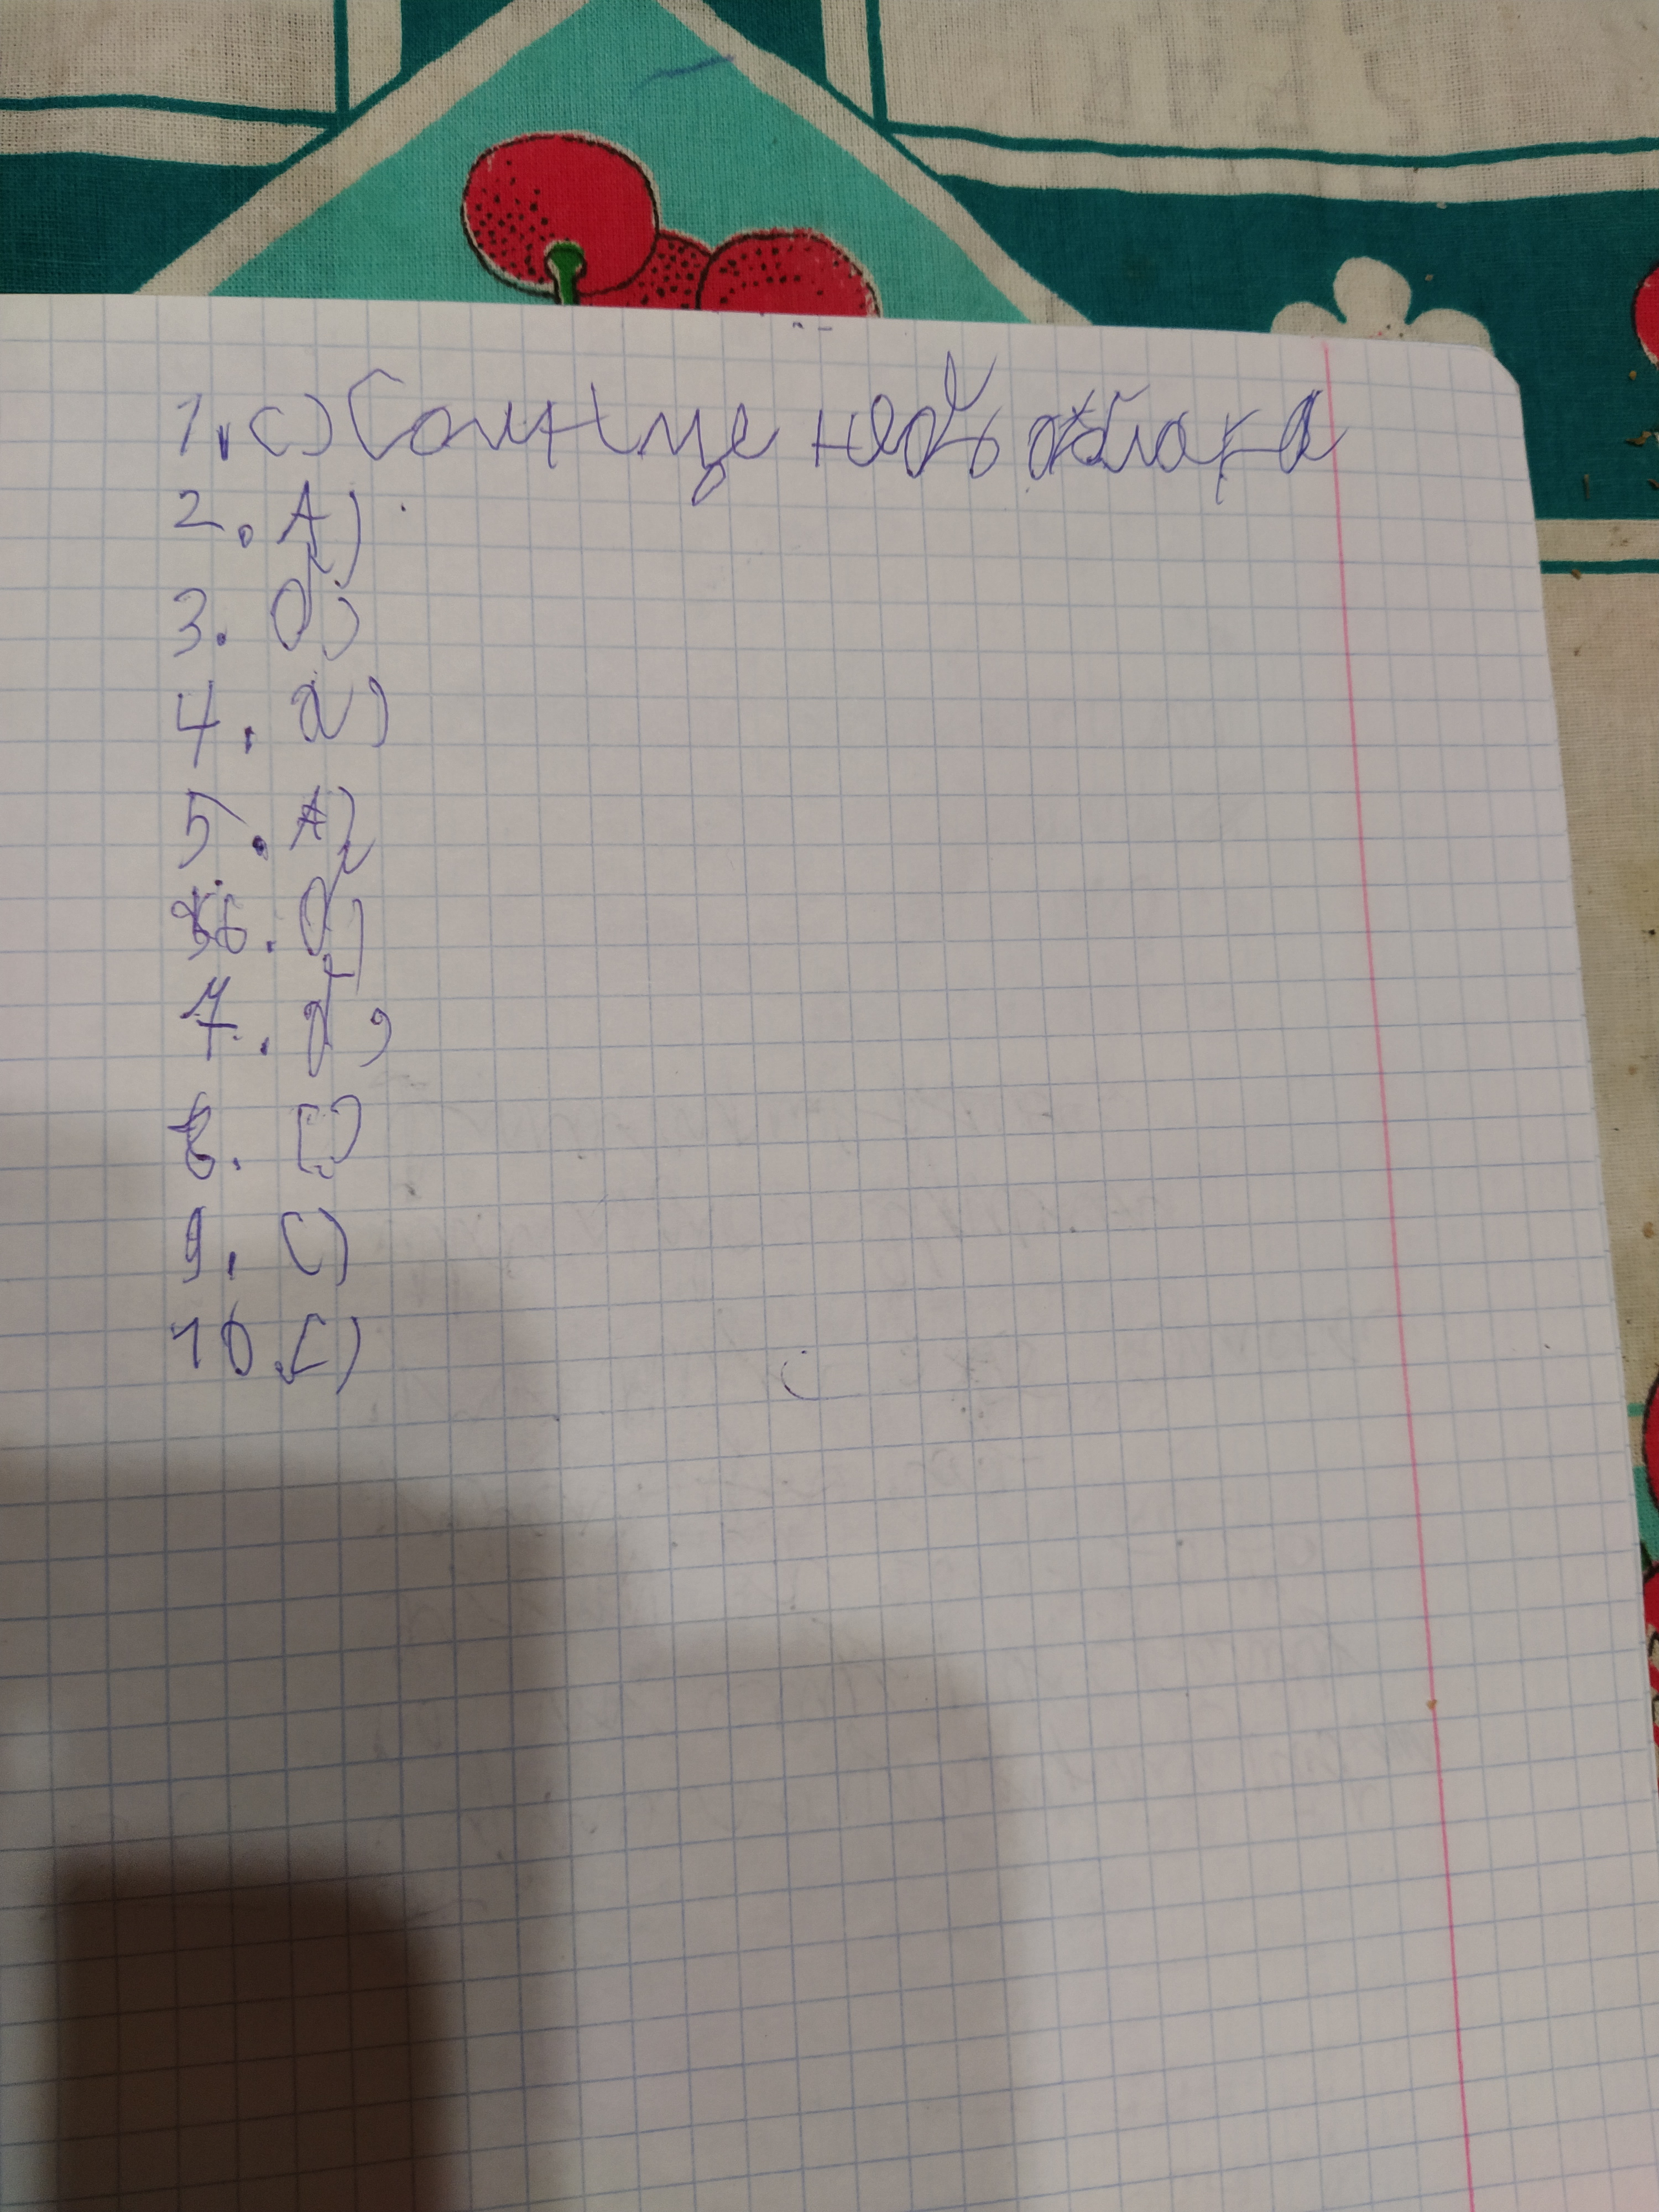 1. с) Солнце небо облака
2. А)
3. б)
4. а)
5. А)
6. б)
7. б)
8. С)
9. С)
10. С)